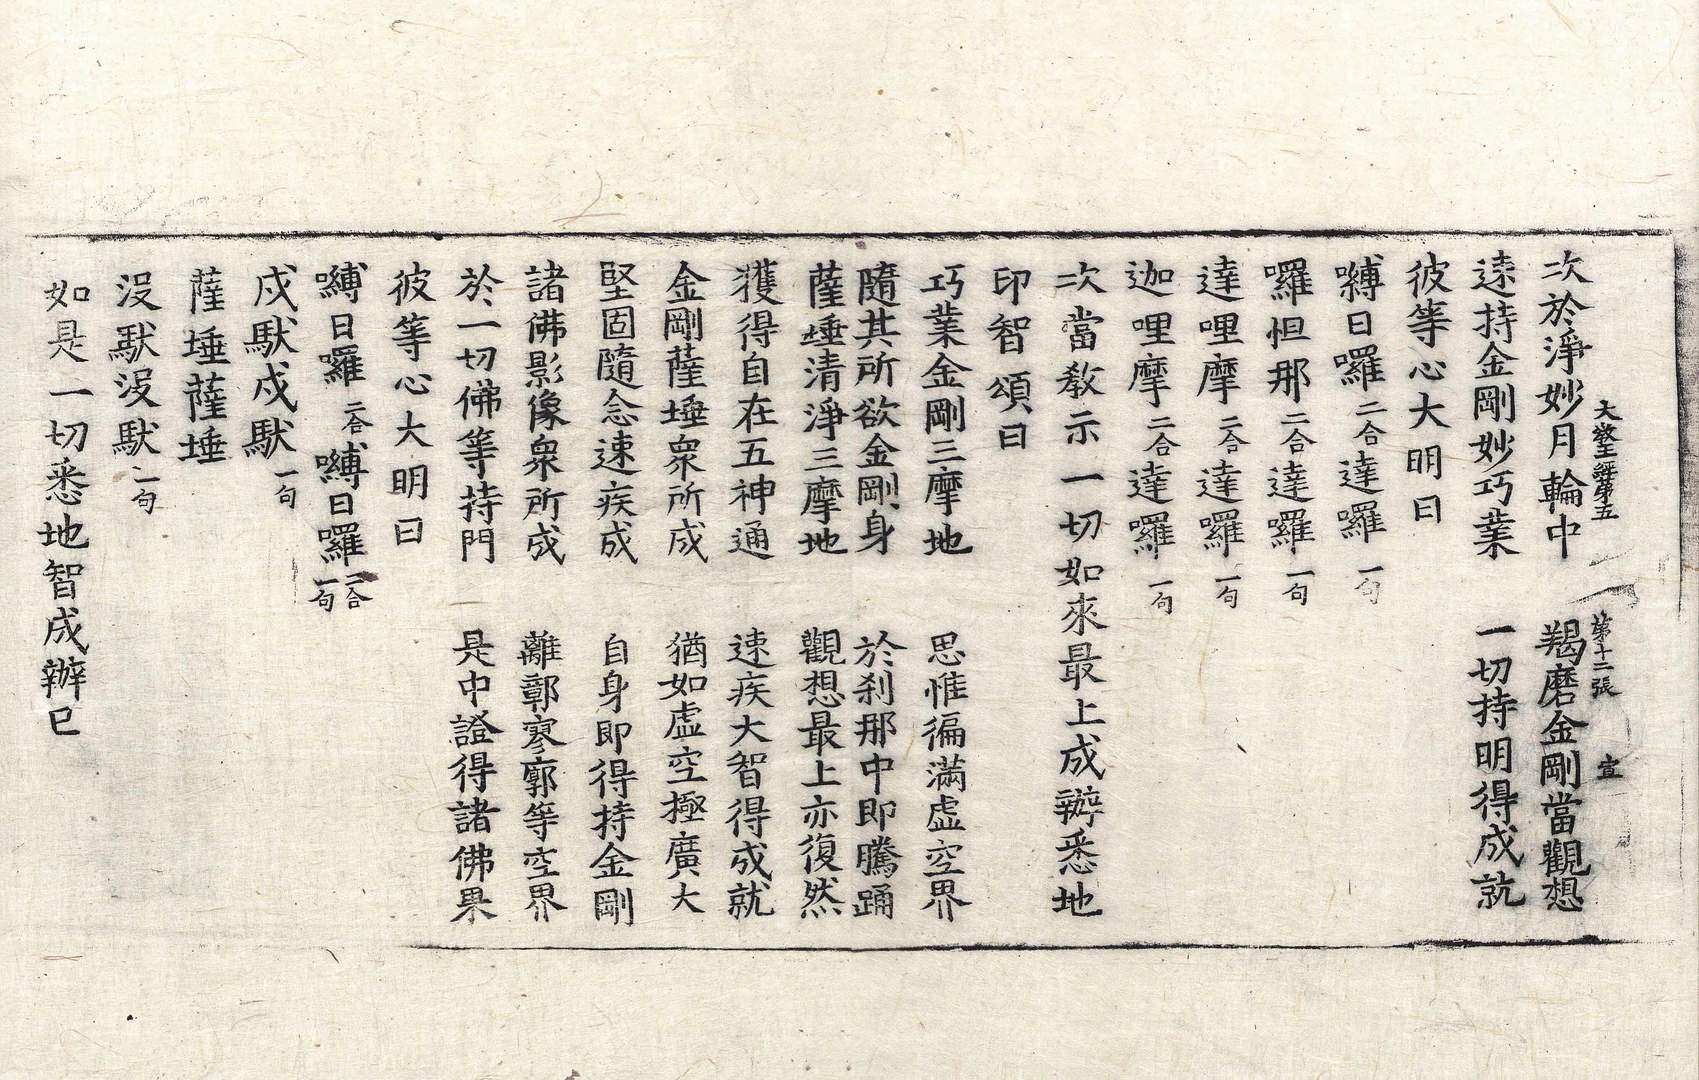 大教王經第五　第十二張　宣
次於淨妙月輪中　羯磨金剛當觀想
速持金剛妙巧業　一切持明得成就
彼等心大明曰
嚩日囉二合達囉一句
囉怛那二合達囉一句
達哩摩二合達囉一句
迦哩摩二合達囉一句
次當教示一切如來最上成辦悉地
印智頌曰
巧業金剛三摩地　思惟徧滿虛空界
隨其所欲金剛身　於刹那中即騰踊
薩埵清淨三摩地　觀想最上亦復然
獲得自在五神通　速疾大智得成就
金剛薩埵衆所成　猶如虛空極廣大
堅固隨念速疾成　自身即得持金剛
諸佛影像衆所成　離鄣寥廓等空界
於一切佛等持門　是中證得諸佛果
彼等心大明曰
嚩日囉二合嚩日囉二合一句
戍馱戍馱一句
薩埵薩埵
沒馱沒馱一句
如是一切悉地智成辦已